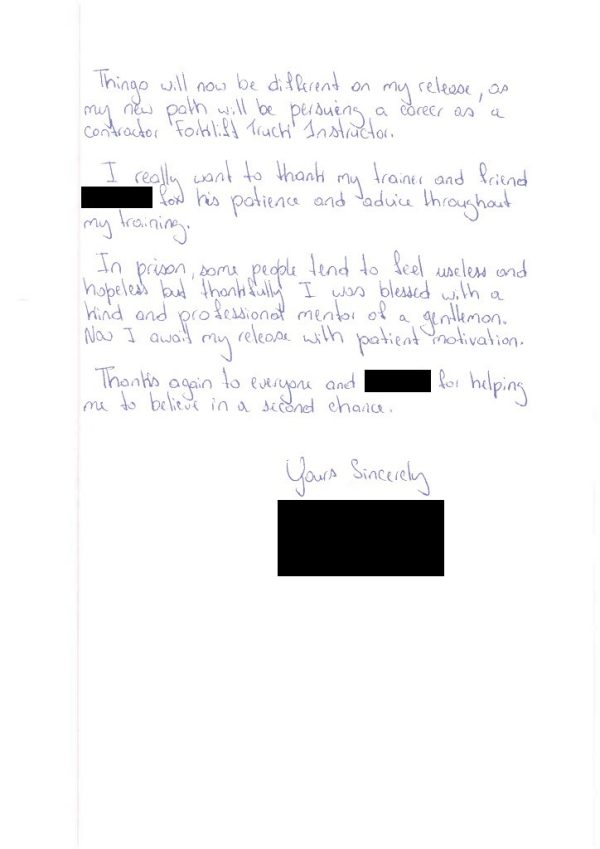 Things will now be different on my release, as
my new path will be persueing a career as a
contractor Forklift Truck Instructor.
I really want to thank my trainer and friend
for his patience and advice throughout
my training.
In prison, some people tend to feel useless and
hopeless but thankfully I was blessed with a
kind and professional mentor of a gentleman.
Now I await my release with patient motivation.
Thanks again to everyone and for helping
me to believe in a second chance.
Yours Sincerely